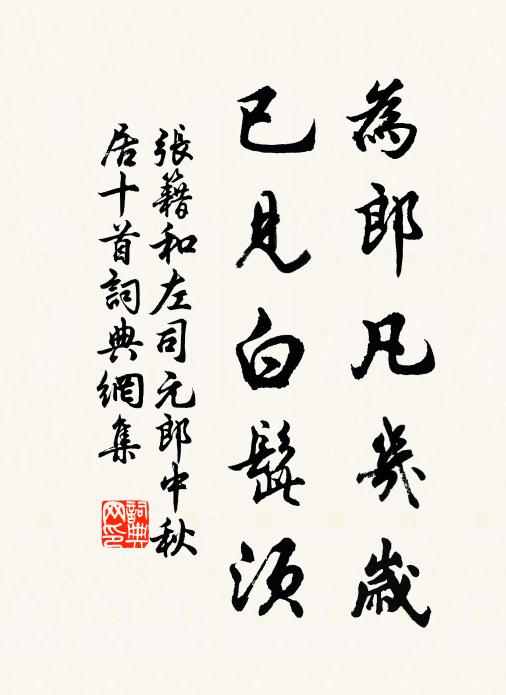 為郎凡幾歲
已見白髭須
張籍和左司元郎中秋
居十首詞典網集
詞典
网印